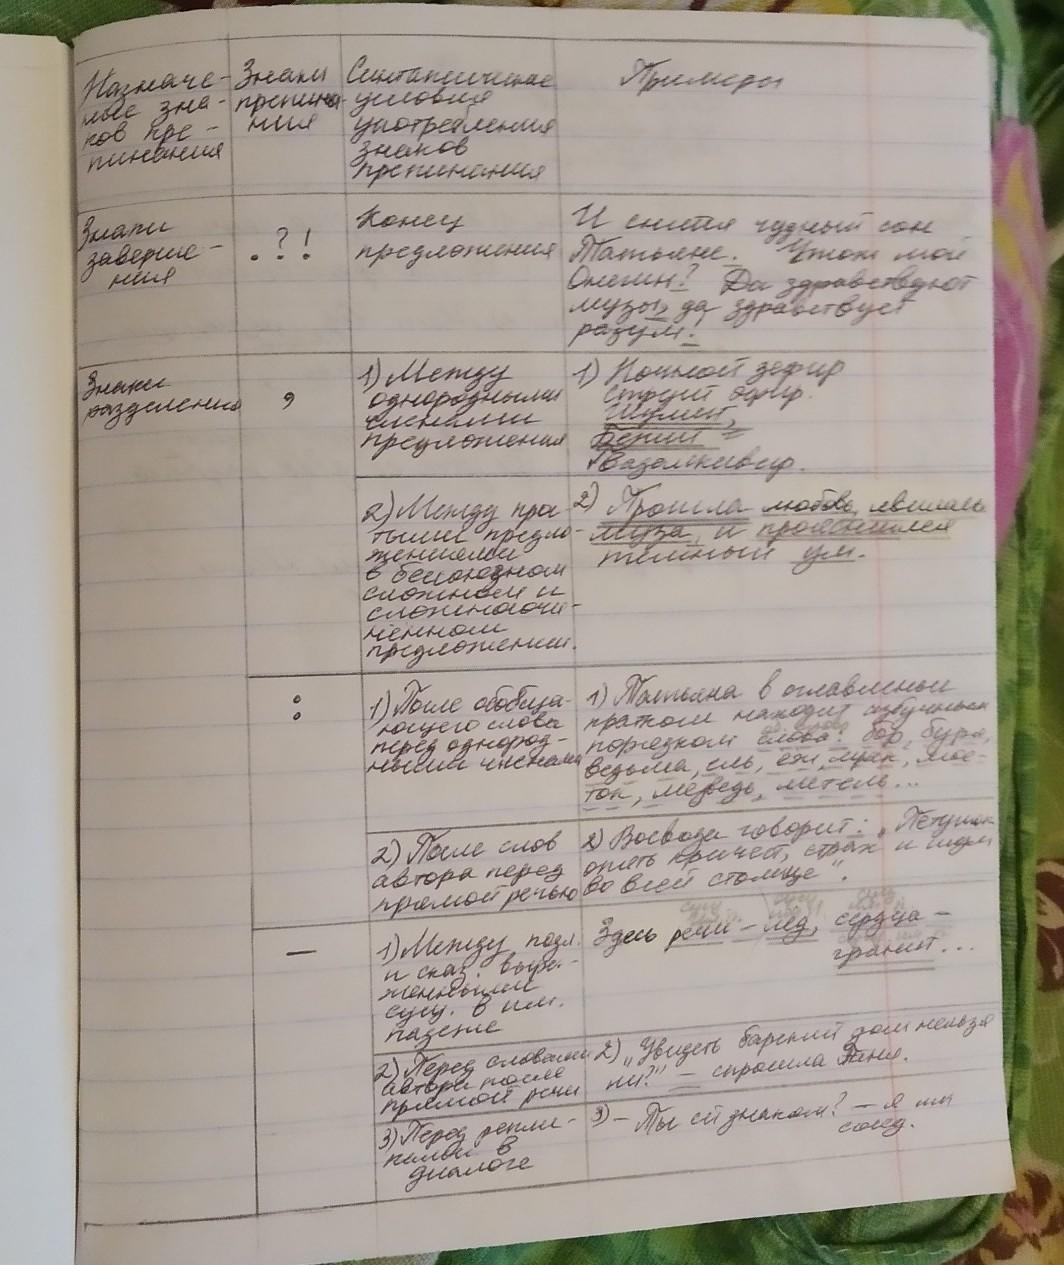 Назначе-
ние зна-
ков пре-
пинания
Знаки
препина-
ния
Синтаксические
условия
употребления
знаков
препинания
Примеры
Знаки
заверше-
ния
. ? !
Конец
предложения
И снится чудный сон
Татьяне. Что ж мой
Онегин? Да здравствуют
музы, да здравствует
разум!
Знаки
разделения
,
1) Между
однородными
членами
предложения
1) Ночной зефир
струит эфир.
Шумит,
бежит
Гвадалквивир.
2) Между прос
тыми предло-
жениями
в бессоюзном
сложном и
сложносочи-
ненном
предложении.
2) Прошла любовь, явилась
муза, и прояснился
темный ум.
:
1) После обобща-
ющего слова
перед однород-
ными членами
1) Татьяна в оглавленьи
кратком находит азбучным
порядком слова: бор, буря,
ведьма, ель, еж, мрак, мос-
ток, медведь, метель...
2) После слов
автора перед
прямой речью
2) Воевода говорит: „Петушок
опять кричит, страх и шум
во всей столице".
—
1) Между подл.
и сказ. выра-
женными
сущ. в им.
падеже
Здесь речи – лед, сердца –
гранит...
2) Перед словами
автора после
прямой речи
2) „Увидеть барский дом нельзя
ли?" – спросила Таня.
3) Перед репли-
ками в
диалоге
3) – Ты ей знаком? – я им
сосед.